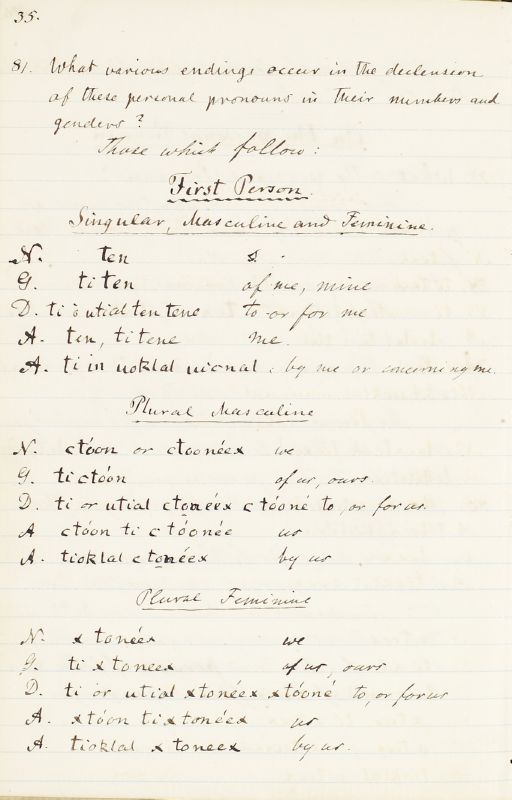 35.
81. What various endings occur in the declension
of these personal pronouns in their numbers and
genders?
Those which follow:
First Person.
Singular, Masculine and Feminine.
N. ten
G. ti ten of me, mine
D. ti ó utial ten tene to or for me
A. ten, ti tene me.
A. ti in uoklal uicnal : by me or concerning me.
Plural Masculine
N. ctóon or ctoonéex we
G. ti ctóon of us, ours.
D. ti or utial ctonéex ctóoné to, or for us.
A ctóon ti ctóonée us
A. tioklal ctonéex by us
Plural Feminine
N. x tonéex we
G. ti x toneex of us, ours
D. ti or utial xtonéex xtóoné to, or for us
A. xtóon ti xtonéex us
A. tioklal x toneex by us.